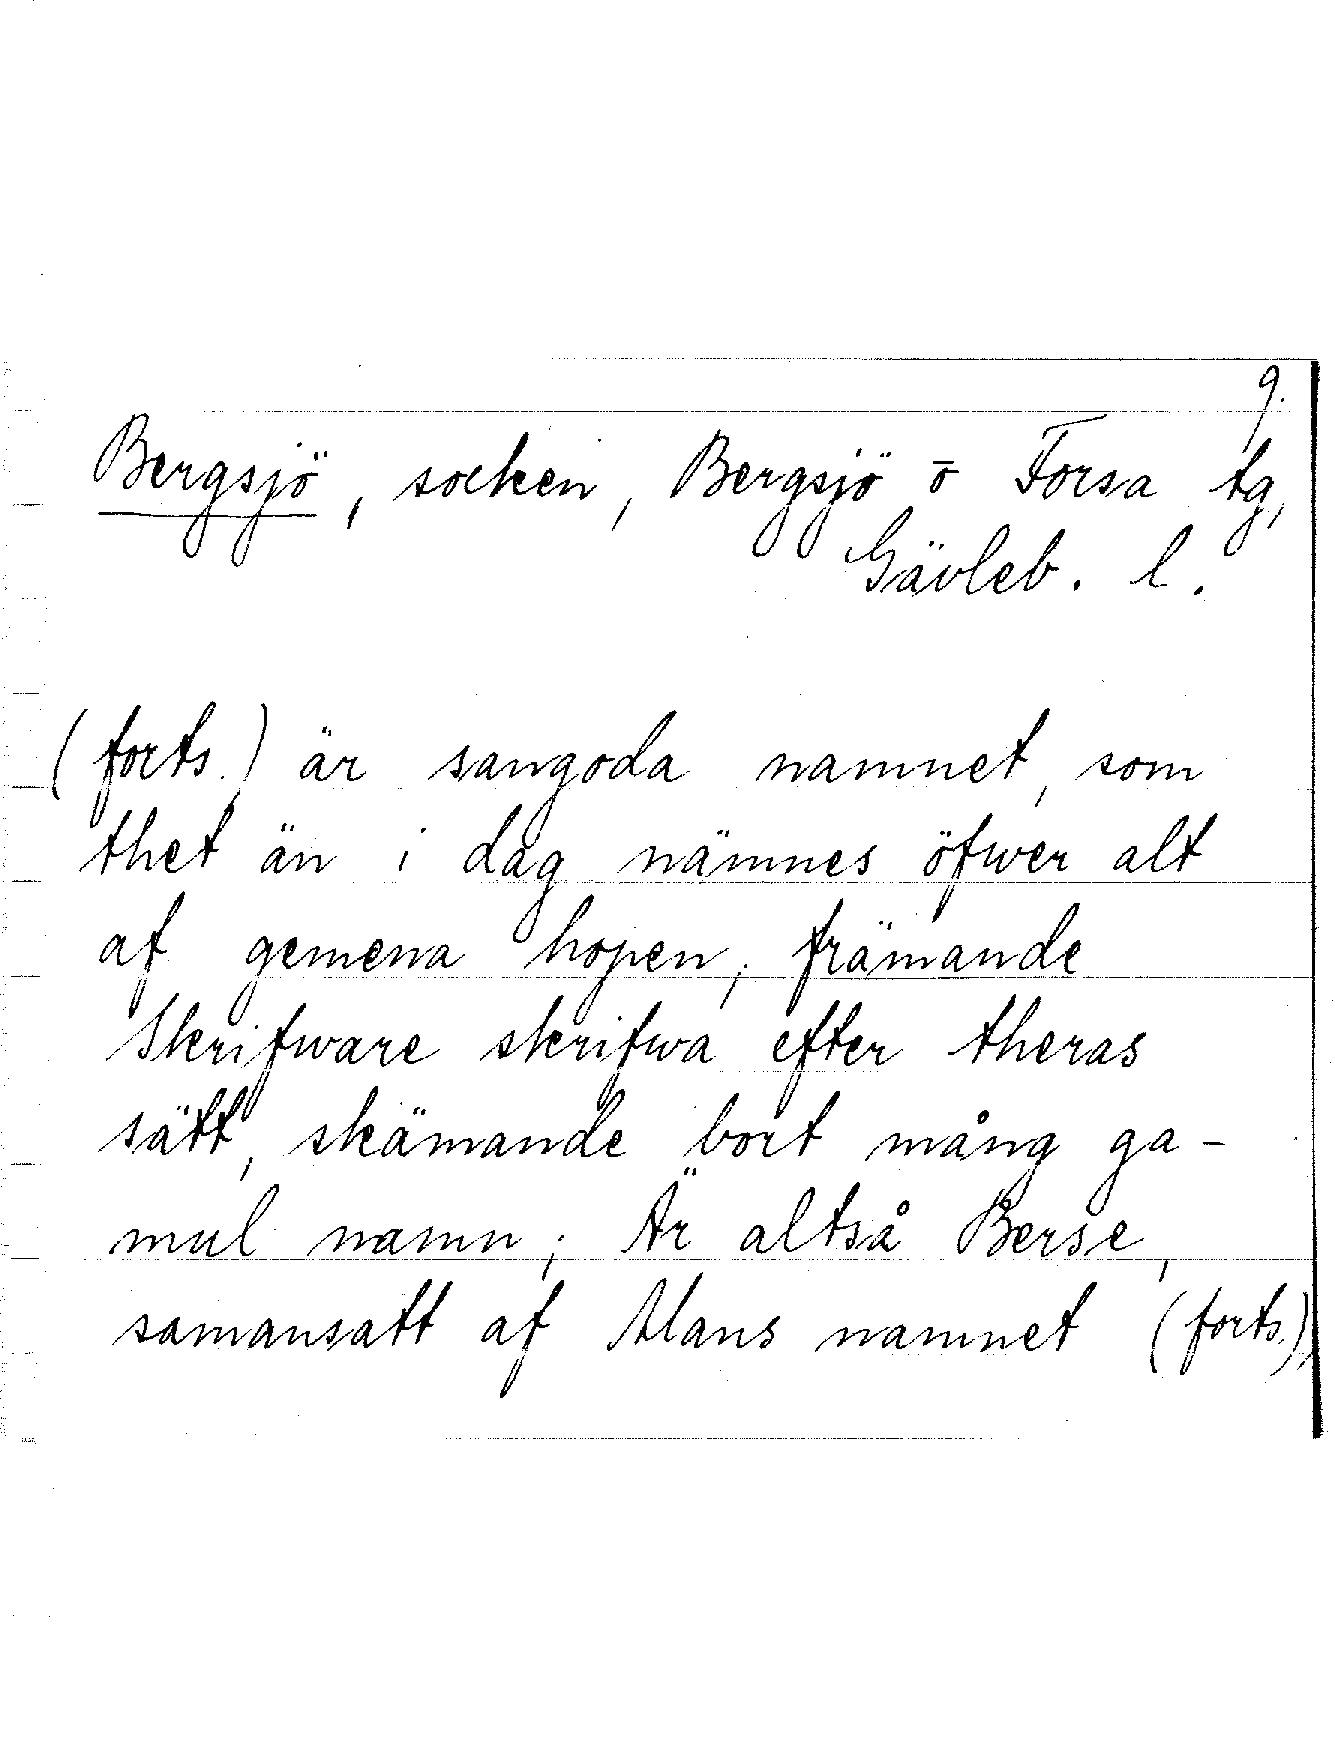 9.
Bergsjö, socken, Bergsjö o Forsa tg,
Gävleb. l.
(forts.) är sangoda namnet, som
thet än i dag nämnes öfwer alt
af gemena hopen, främande
Skrifware skrifwa efter theras
sätt, skämande bort mång ga-
mul namn; Är altså Berse,
samansatt af Mans namnet (forts.)